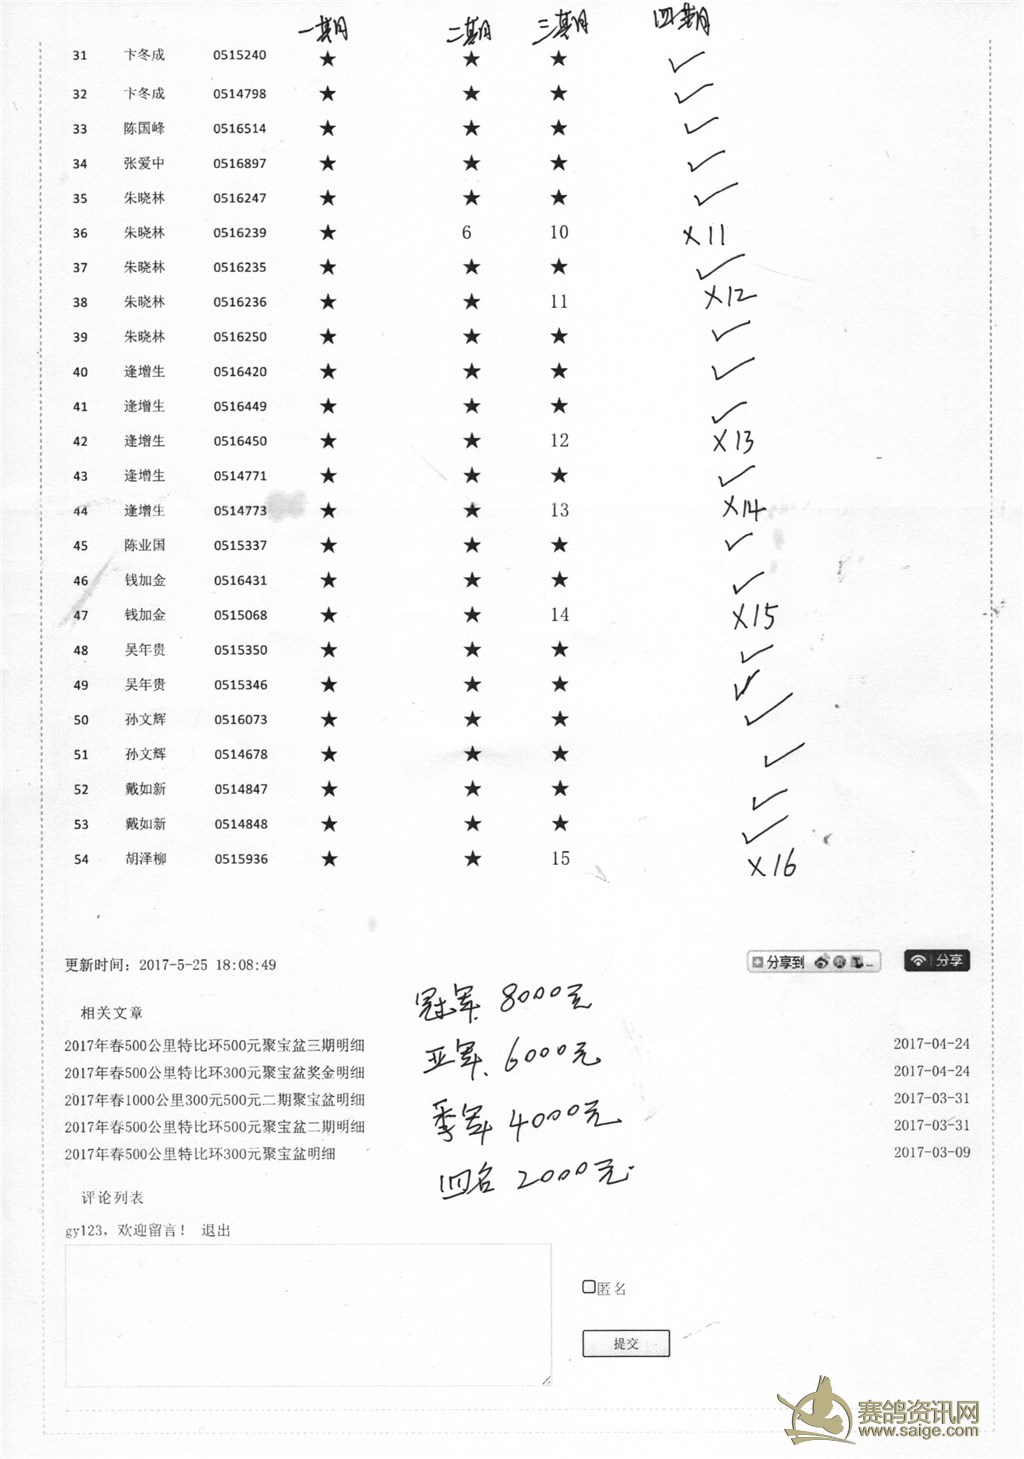 一期 二期 三期 四期
31 卞冬成 0515240 ★ ★ ★ ✓
32 卞冬成 0514798 ★ ★ ★ ✓
33 陈国峰 0516514 ★ ★ ★ ✓
34 张爱中 0516897 ★ ★ ★ ✓
35 朱晓林 0516247 ★ ★ ★ ✓
36 朱晓林 0516239 ★ 6 10 ×11
37 朱晓林 0516235 ★ ★ ★ ✓
38 朱晓林 0516236 ★ ★ 11 ×12
39 朱晓林 0516250 ★ ★ ★ ✓
40 逄增生 0516420 ★ ★ ★ ✓
41 逄增生 0516449 ★ ★ ★ ✓
42 逄增生 0516450 ★ ★ 12 ×13
43 逄增生 0514771 ★ ★ ★ ✓
44 逄增生 0514773 ★ ★ 13 ×14
45 陈业国 0515337 ★ ★ ★ ✓
46 钱加金 0516431 ★ ★ ★ ✓
47 钱加金 0515068 ★ ★ 14 ×15
48 吴年贵 0515350 ★ ★ ★ ✓
49 吴年贵 0515346 ★ ★ ★ ✓
50 孙文辉 0516073 ★ ★ ★ ✓
51 孙文辉 0514678 ★ ★ ★ ✓
52 戴如新 0514847 ★ ★ ★ ✓
53 戴如新 0514848 ★ ★ ★ ✓
54 胡泽柳 0515936 ★ ★ 15 ×16
更新时间：2017-5-25 18:08:49 分享到 ... 分享
冠军 8000元
相关文章
2017年春500公里特比环500元聚宝盆三期明细 2017-04-24
亚军 6000元
2017年春500公里特比环300元聚宝盆奖金明细 2017-04-24
2017年春1000公里300元500元二期聚宝盆明细 2017-03-31
季军 4000元
2017年春500公里特比环500元聚宝盆二期明细 2017-03-31
2017年春500公里特比环300元聚宝盆明细 2017-03-09
四名 2000元
评论列表
gy123，欢迎留言！ 退出
匿名
提交
赛鸽资讯网
www.saige.com